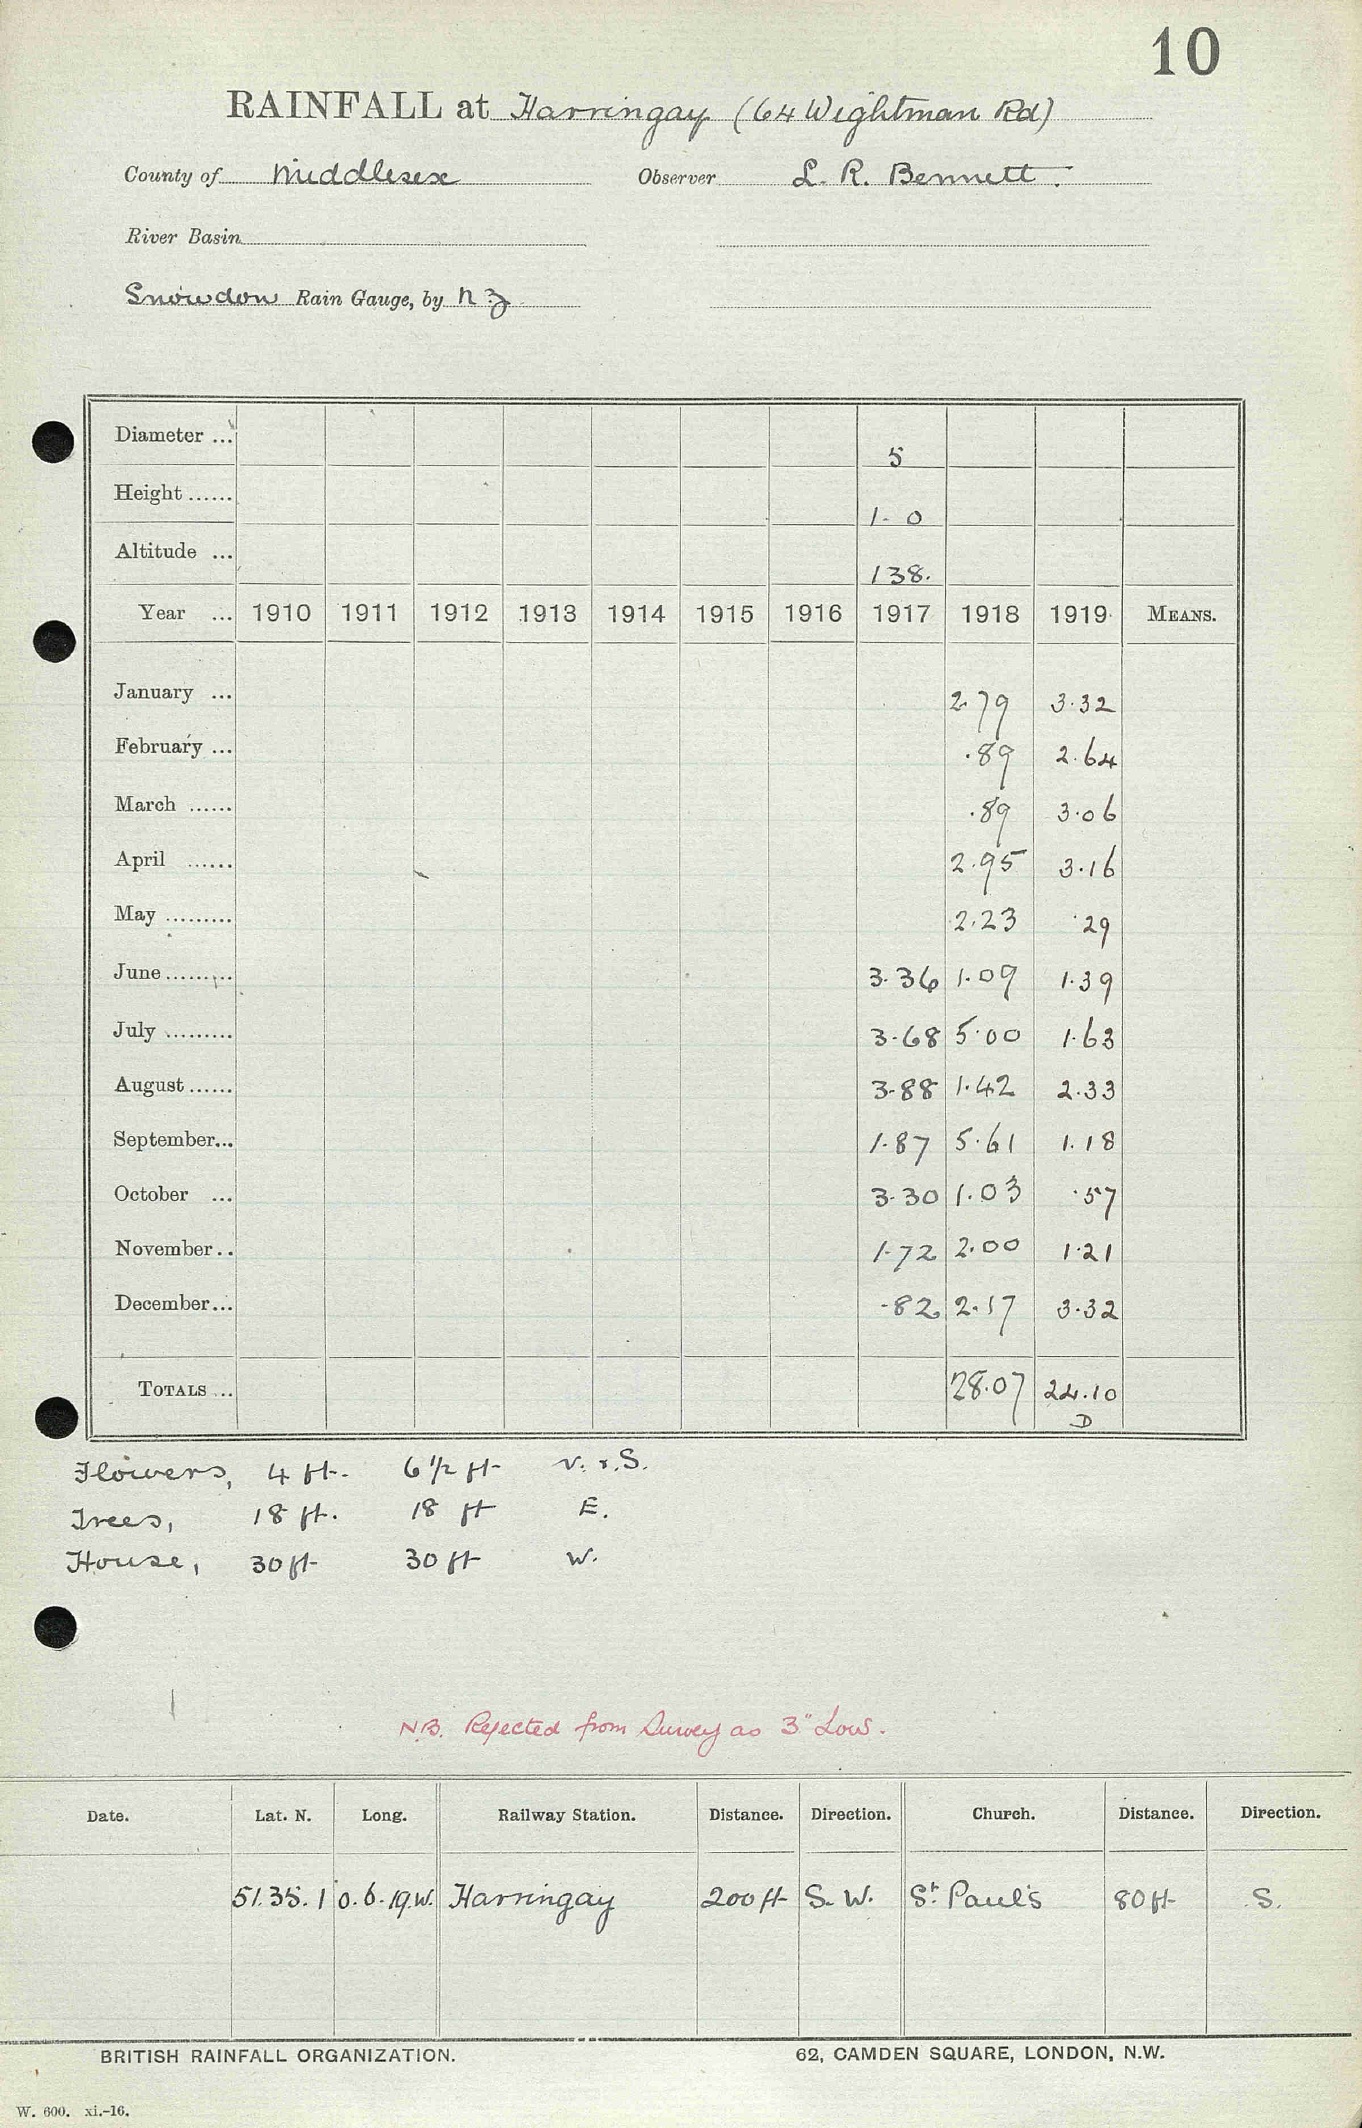 10
RAINFALL at Harringay (64 Wightman Rd)
County of Middlesex Observer L. R. Bennett.
River Basin
Snowdon Rain Gauge, by N &Z
Diameter ... 5
Height ...... 1- 0
Altitude ... 138.
Year ... 1910 1911 1912 1913 1914 1915 1916 1917 1918 1919 MEANS.
January ... 2.79 3.32
February ... .89 2.64
March ...... .89 3.06
April ...... 2.95 3.16
May ......... 2.23 .29
June ......... 3.36 1.09 1.39
July ......... 3.68 5.00 1.63
August ...... 3.88 1.42 2.33
September... 1.87 5.61 1.18
October ... 3.30 1.03 .57
November .. 1.72 2.00 1.21
December... .82 2.17 3.32
TOTALS ... 28.07 24.10
D
Flowers, 4 ft. 6 1/2 ft S.
Trees, 18 ft. 18 ft E.
House, 30 ft 30 ft W.
N.B. Rejected from Survey as 3" Low.
Date. Lat. N. Long. Railway Station. Distance. Direction. Church. Distance. Direction.
51.35.1 0.6.19.W. Harringay 200 ft S.W. St. Paul's 80 ft S.
BRITISH RAINFALL ORGANIZATION. 62, CAMDEN SQUARE, LONDON, N.W.
W. 600. xi.-16.